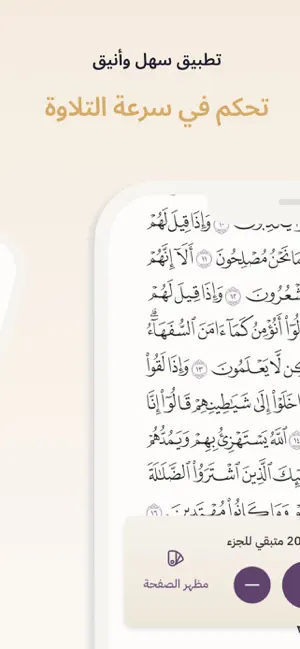 تطبيق سهل وأنيق
تحكم في سرعة التلاوة
١٠ وَإِذَا قِيلَ لَهُمْ
مَا نَحْنُ مُصْلِحُونَ ١١ أَلَآ إِنَّهُمْ
١٢ وَإِذَا قِيلَ لَهُمْ
أَنُؤْمِنُ كَمَآ ءَامَنَ ٱلسُّفَهَآءُ
لَّا يَعْلَمُونَ ١٣ وَإِذَا لَقُوا۟
خَلَوْا۟ إِلَىٰ شَيَـٰطِينِهِمْ قَالُوٓا۟ إِنَّا
١٤ ٱللَّهُ يَسْتَهْزِئُ بِهِمْ وَيَمُدُّهُمْ
ٱلَّذِينَ ٱشْتَرَوُا۟ ٱلضَّلَـٰلَةَ
وَمَا كَانُوا۟ مُهْتَدِينَ ١٦
20 متبقي للجزء
مظهر الصفحة